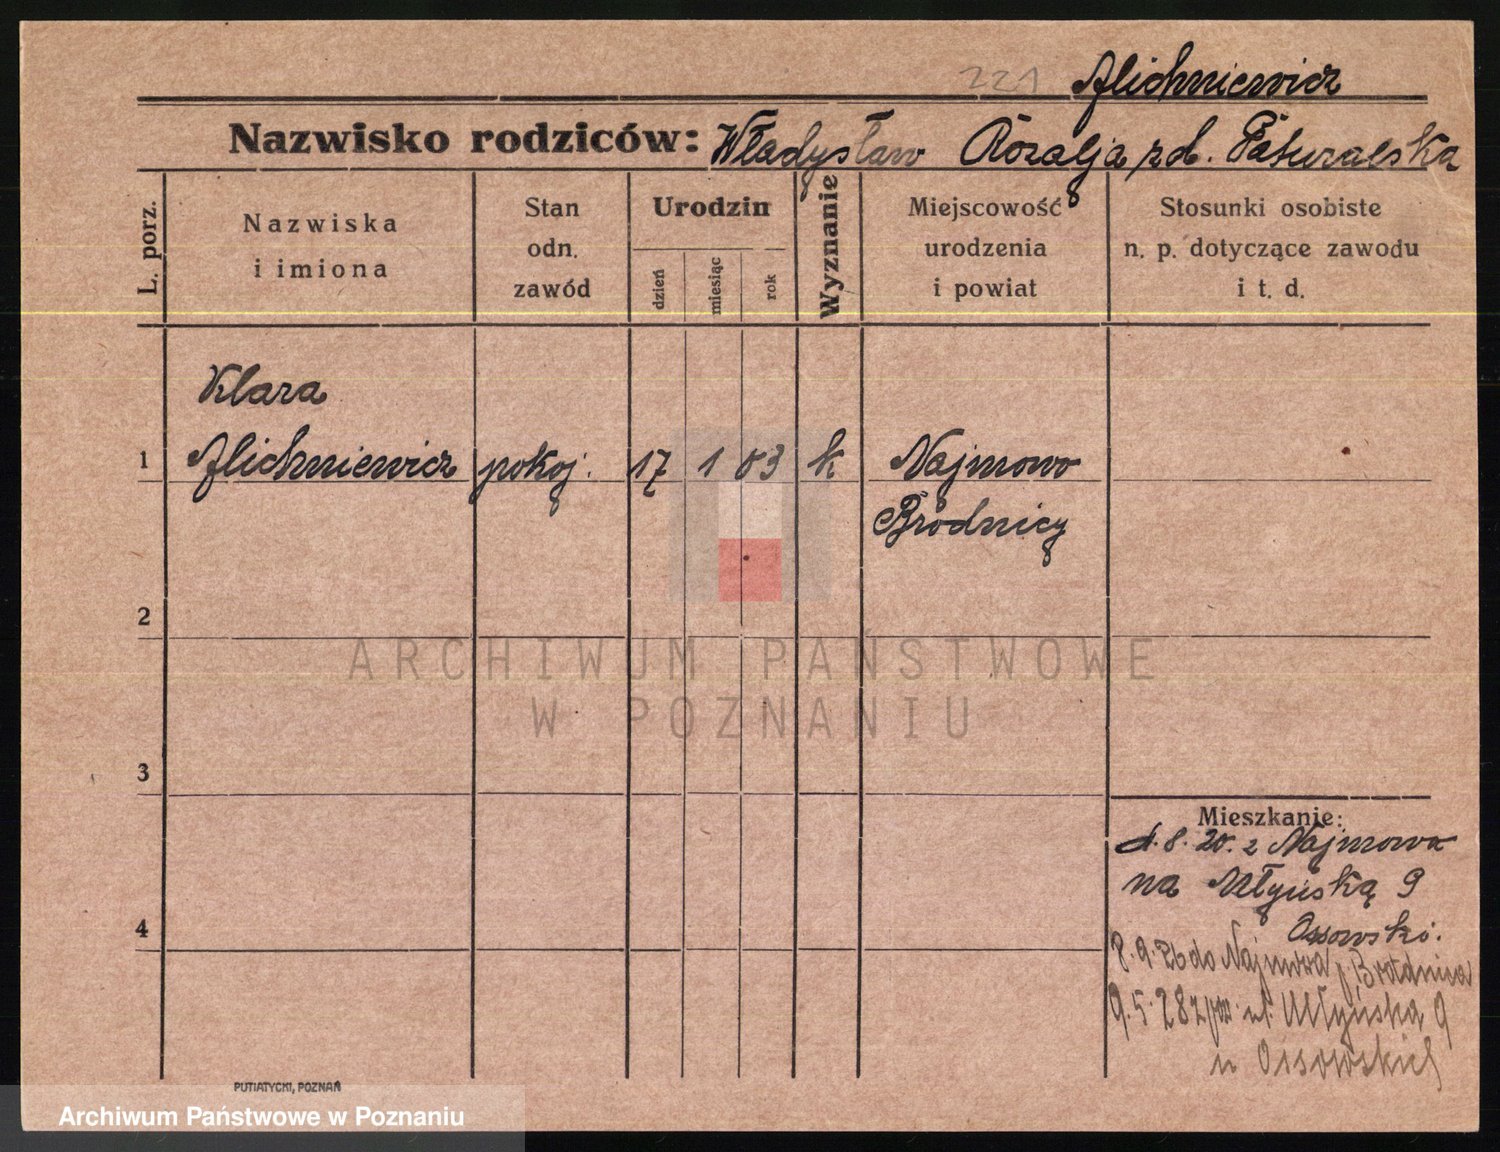 221 Alichniewicz
Nazwisko rodziców: Władysław Rozalja zd. Paturalska
L. porz.
Nazwiska
i imiona
Stan
odn.
zawód
Urodzin
dzień
miesiąc
rok
Wyznanie
Miejscowość
urodzenia
i powiat
Stosunki osobiste
n. p. dotyczące zawodu
i t. d.
Klara
1 Alichniewicz pokoj. 17 1 03 k Najmowo
Brodnicy
2
ARCHIWUM PAŃSTWOWE
W POZNANIU
3
Mieszkanie:
8. 20. z Najmowa
na Młyńską 9
4
Ossowski.
8.9.26 do Najmowa p. Brodnica
9.5.28 z ul. Młyńska 9
u Ossowskich
PUTIATYCKI, POZNAŃ
Archiwum Państwowe w Poznaniu